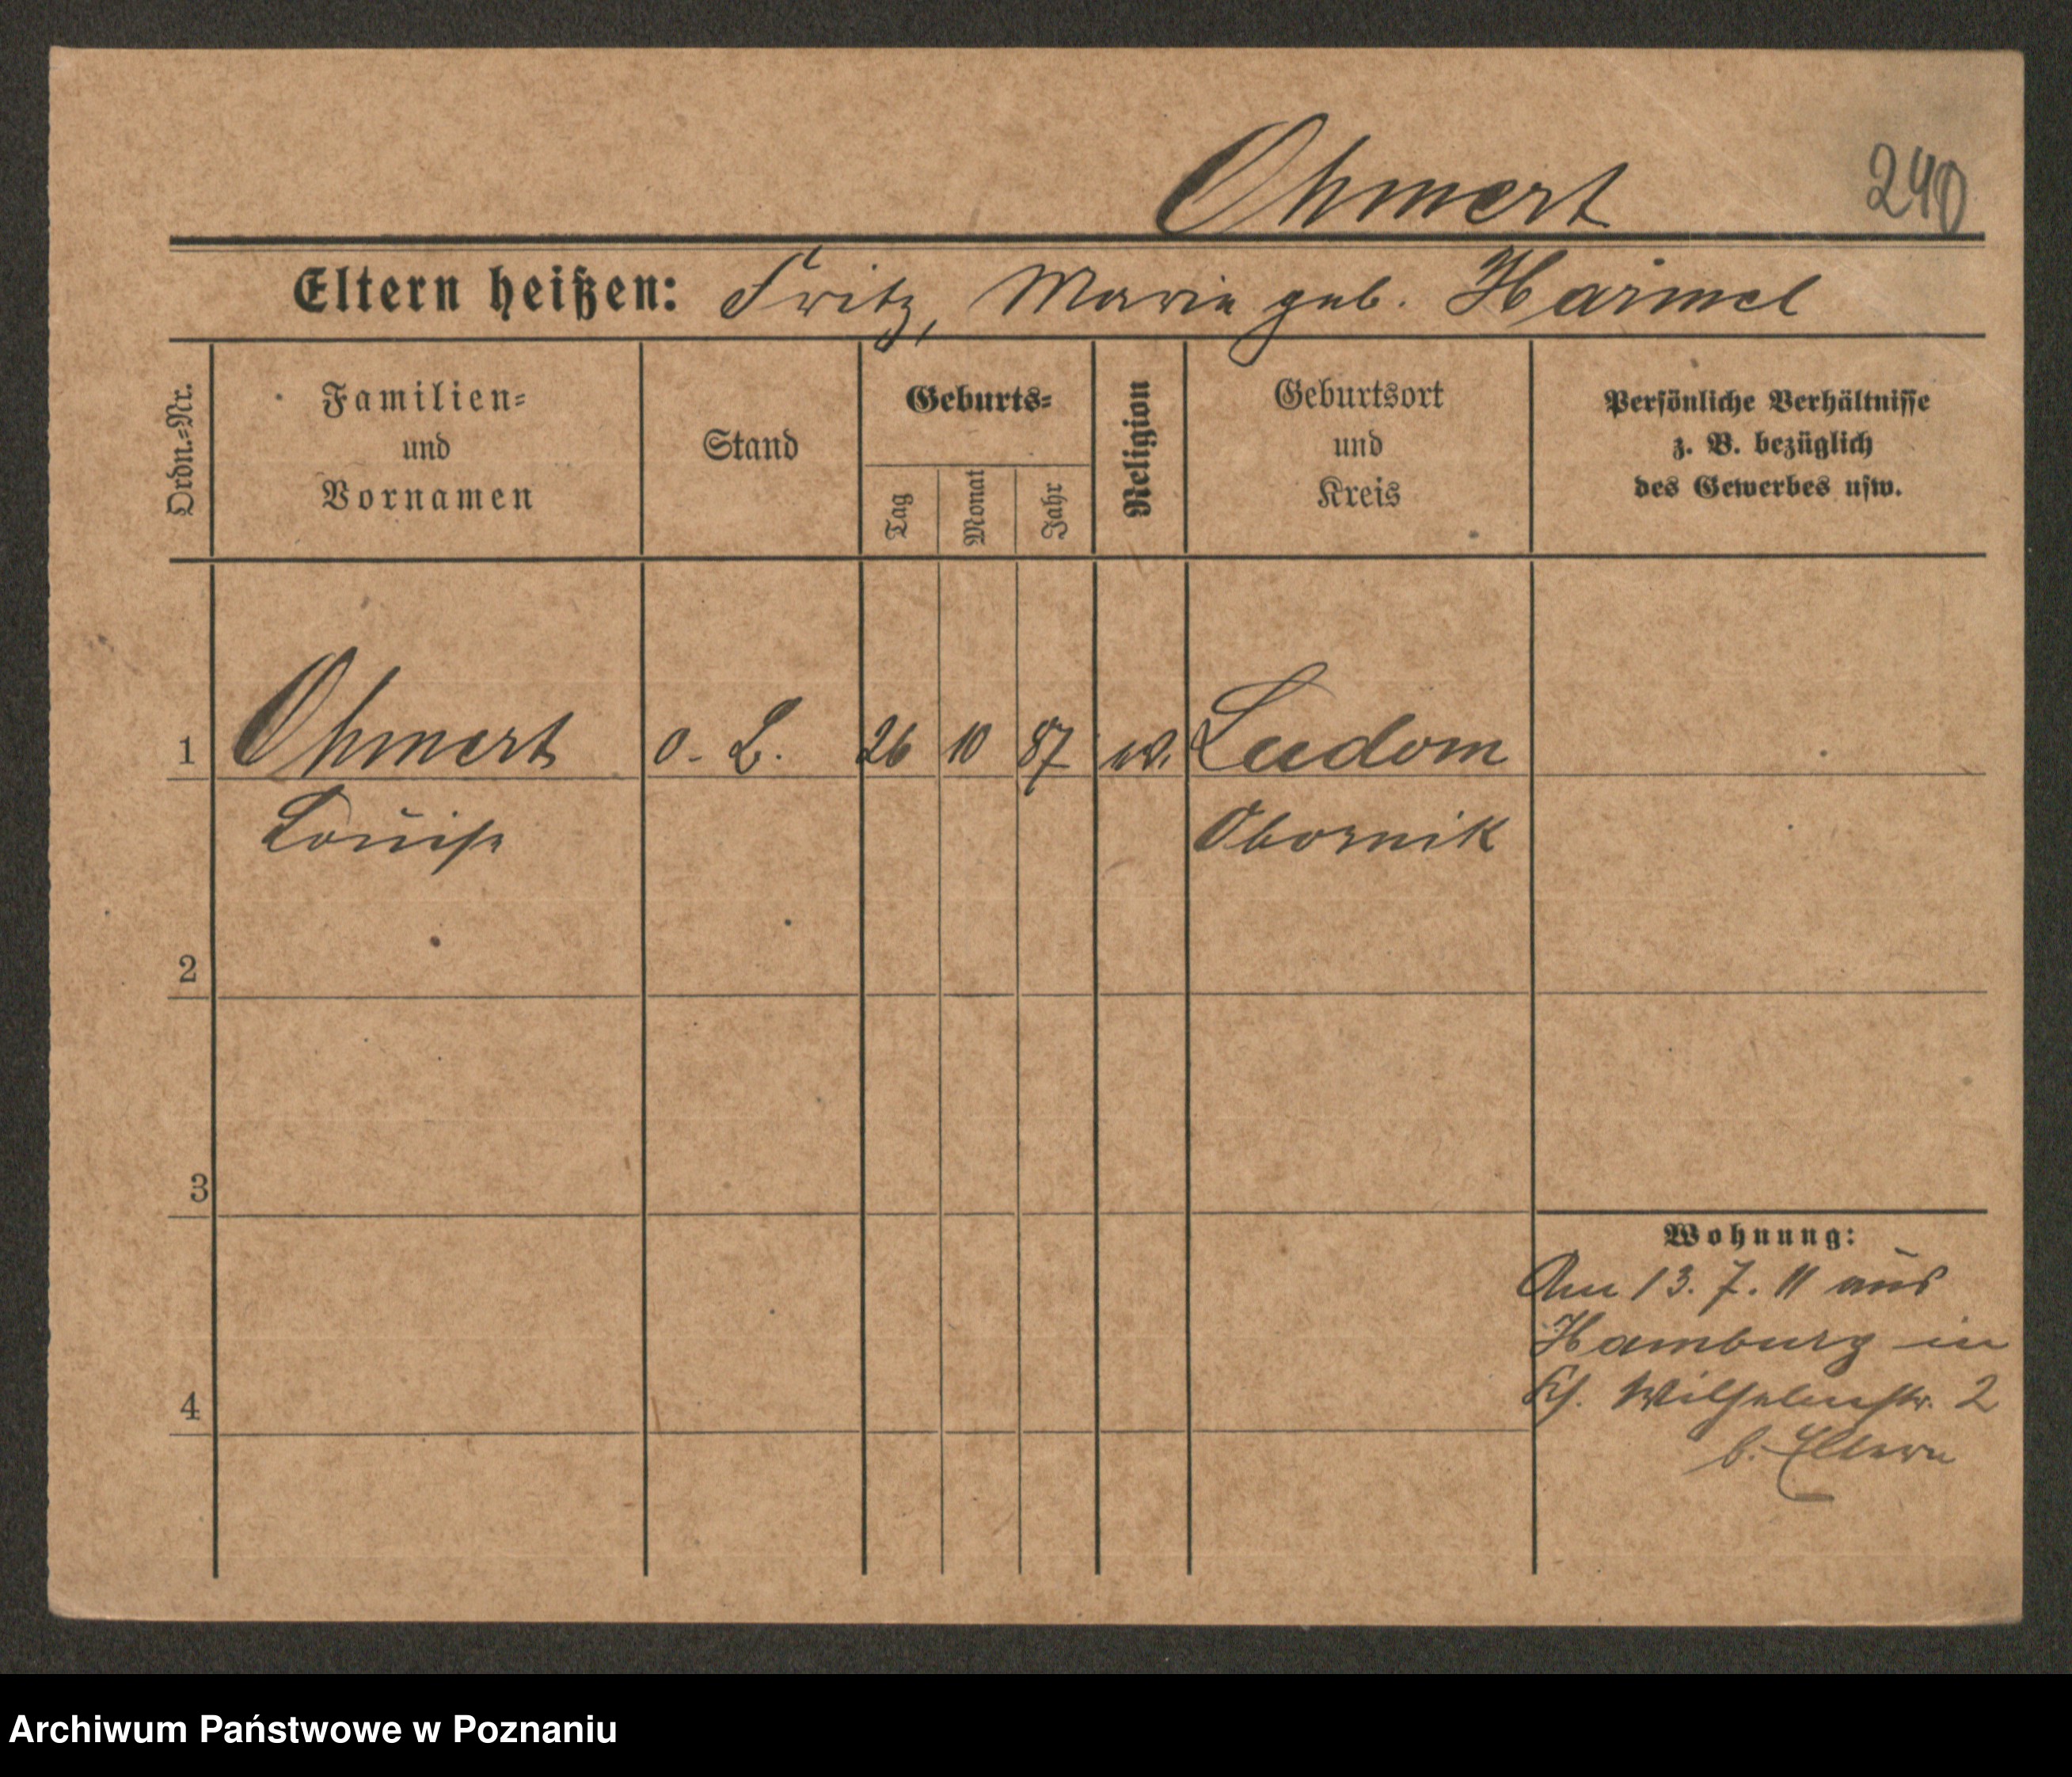 Ohmert
240
Eltern heißen: Fritz, Marie geb. Härmel
Ordn.-Nr.
Familien-
und
Vornamen
Stand
Geburts-
Tag
Monat
Jahr
Religion
Geburtsort
und
Kreis
Persönliche Verhältnisse
z. B. bezüglich
des Gewerbes usw.
1 Ohmert o. B. 26 10 87 ev. Ludom
Louise Obornik
2
3
Wohnung:
Am 13. 7. 11 aus
Hamburg in
4
Wilhelmstr. 2
b. Eltern
Archiwum Państwowe w Poznaniu